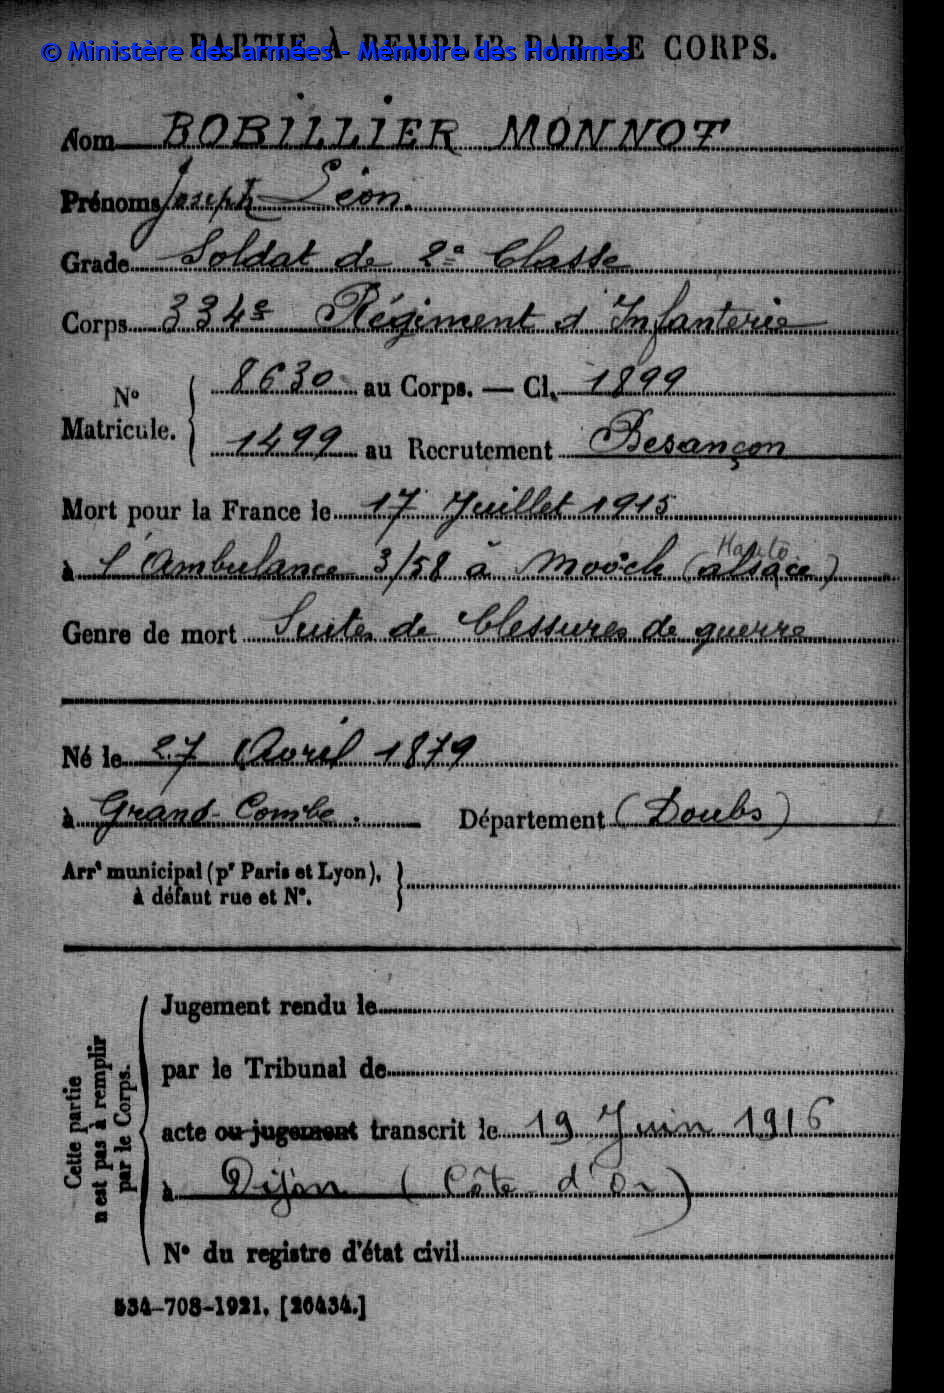 PARTIE À REMPLIR PAR LE CORPS.
© Ministère des armées - Mémoire des Hommes
Nom BOBILLIER MONNOT
Prénoms Joseph Léon.
Grade Soldat de 2e Classe
Corps 334e Régiment d'Infanterie
8630 au Corps. — Cl. 1899
No Matricule.
1499 au Recrutement Besançon
Mort pour la France le 17 Juillet 1915
Haute
à l'Ambulance 3/58 à Moosch (alsace)
Genre de mort Suites de blessures de guerre
Né le 27 Avril 1879
à Grand-Combe. Département (Doubs)
Arrt municipal (pr Paris et Lyon),
à défaut rue et No.
Cette partie
n'est pas à remplir
par le Corps.
Jugement rendu le
par le Tribunal de
acte ou jugement transcrit le 19 Juin 1916
à Dijon (Côte d'Or)
No du registre d'état civil
534-708-1921. [26434.]